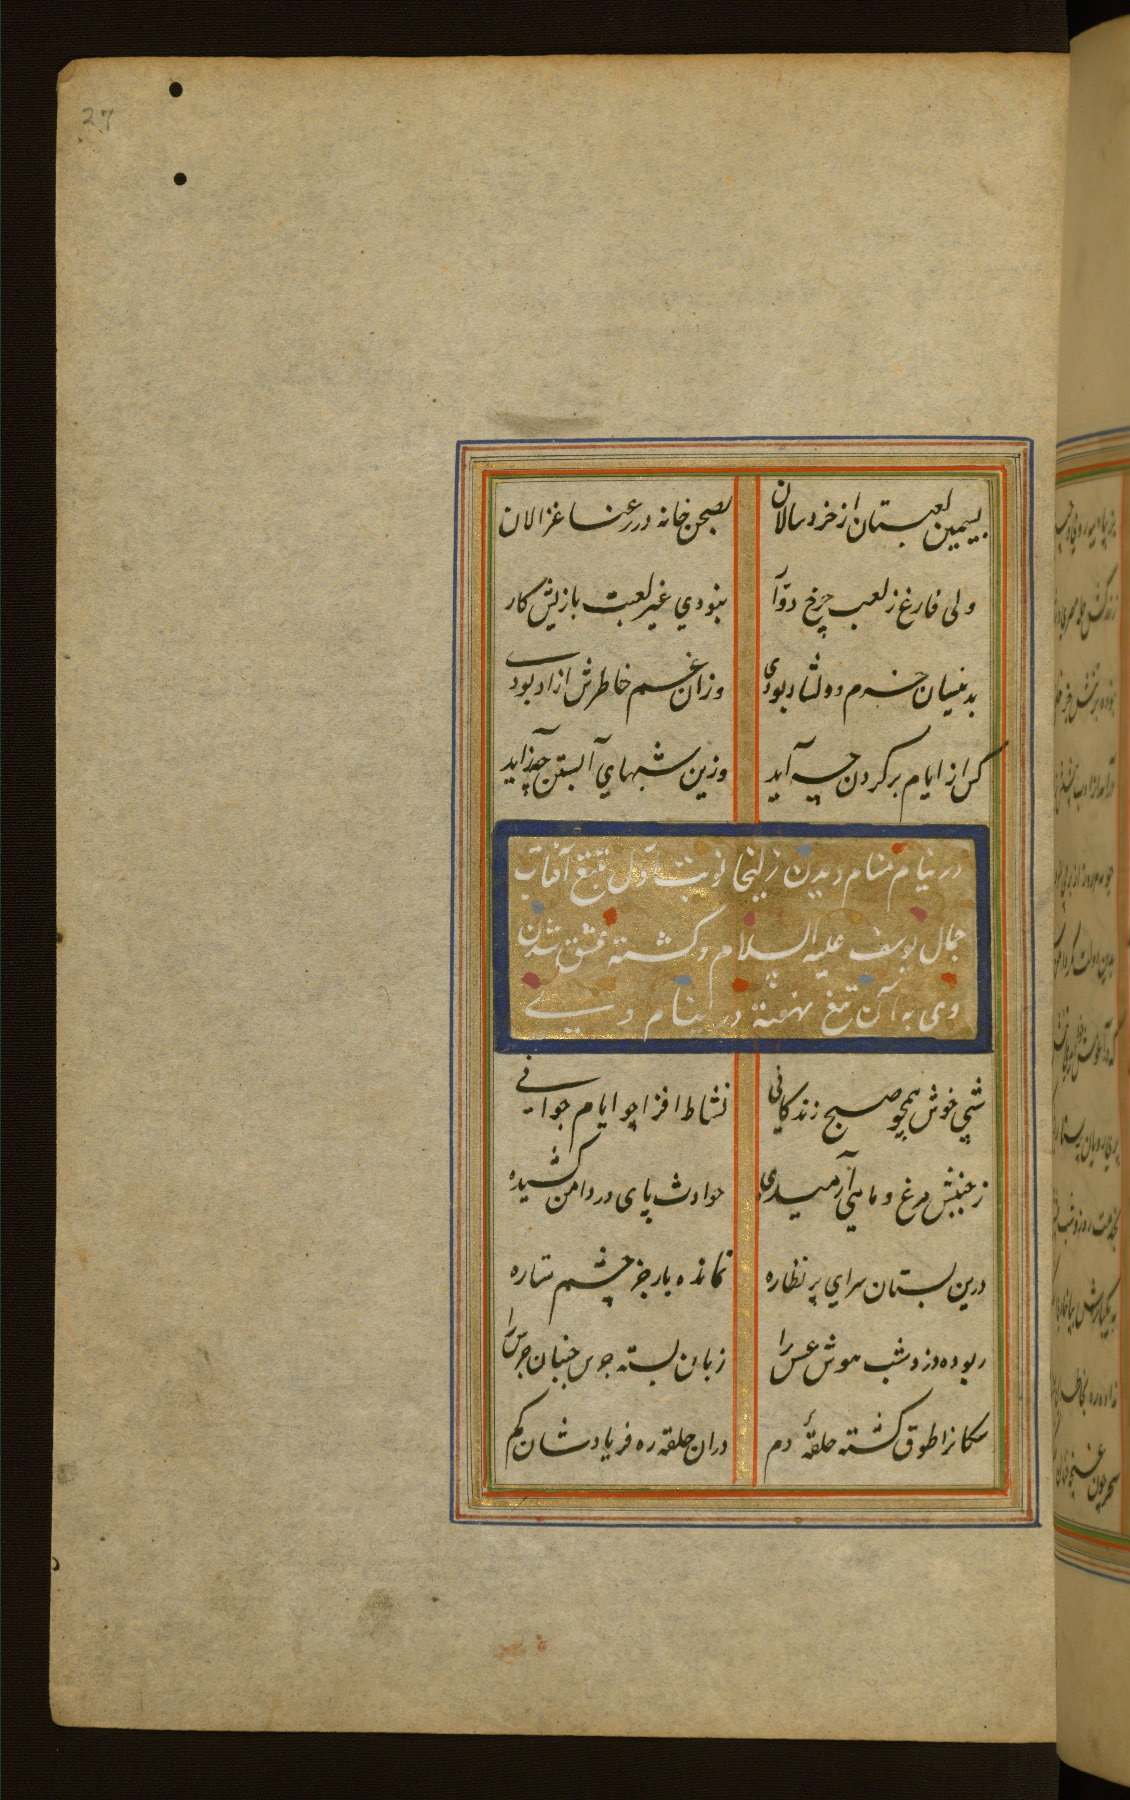 27
بسیمین لعبتان از خردسالان
بصحن خانه در رعنا غزالان
ولی فارغ ز لعب چرخ دوار
نبودی غیر لعبت بازیش کار
بدینسان خرم و دلشاد بودی
وزان غم خاطرش ازاد بودی
کش از ایام بر کردن چه آید
وزین شبهای آبستن چه زاید
در نیام منام دیدن زلیخا نوبت اول تیغ آفتاب
جمال یوسف علیه السلام و کشته عشق شدن
وی به آن تیغ نهفته در نیام
شبی خوش همچو صبح زندکانی
نشاط افزا چو ایام جوانی
ز جنبش مرغ و ماهی آرمیده
حوادث پای در دامن کشیده
درین بستان سرای پر نظاره
نمانده باز جز چشم ستاره
ربوده دزد شب هوش عسس را
زبان بسته جرس جنبان جرس را
سکانرا طوق کشته حلقهٔ دم
دران حلقه ره فریادشان کم